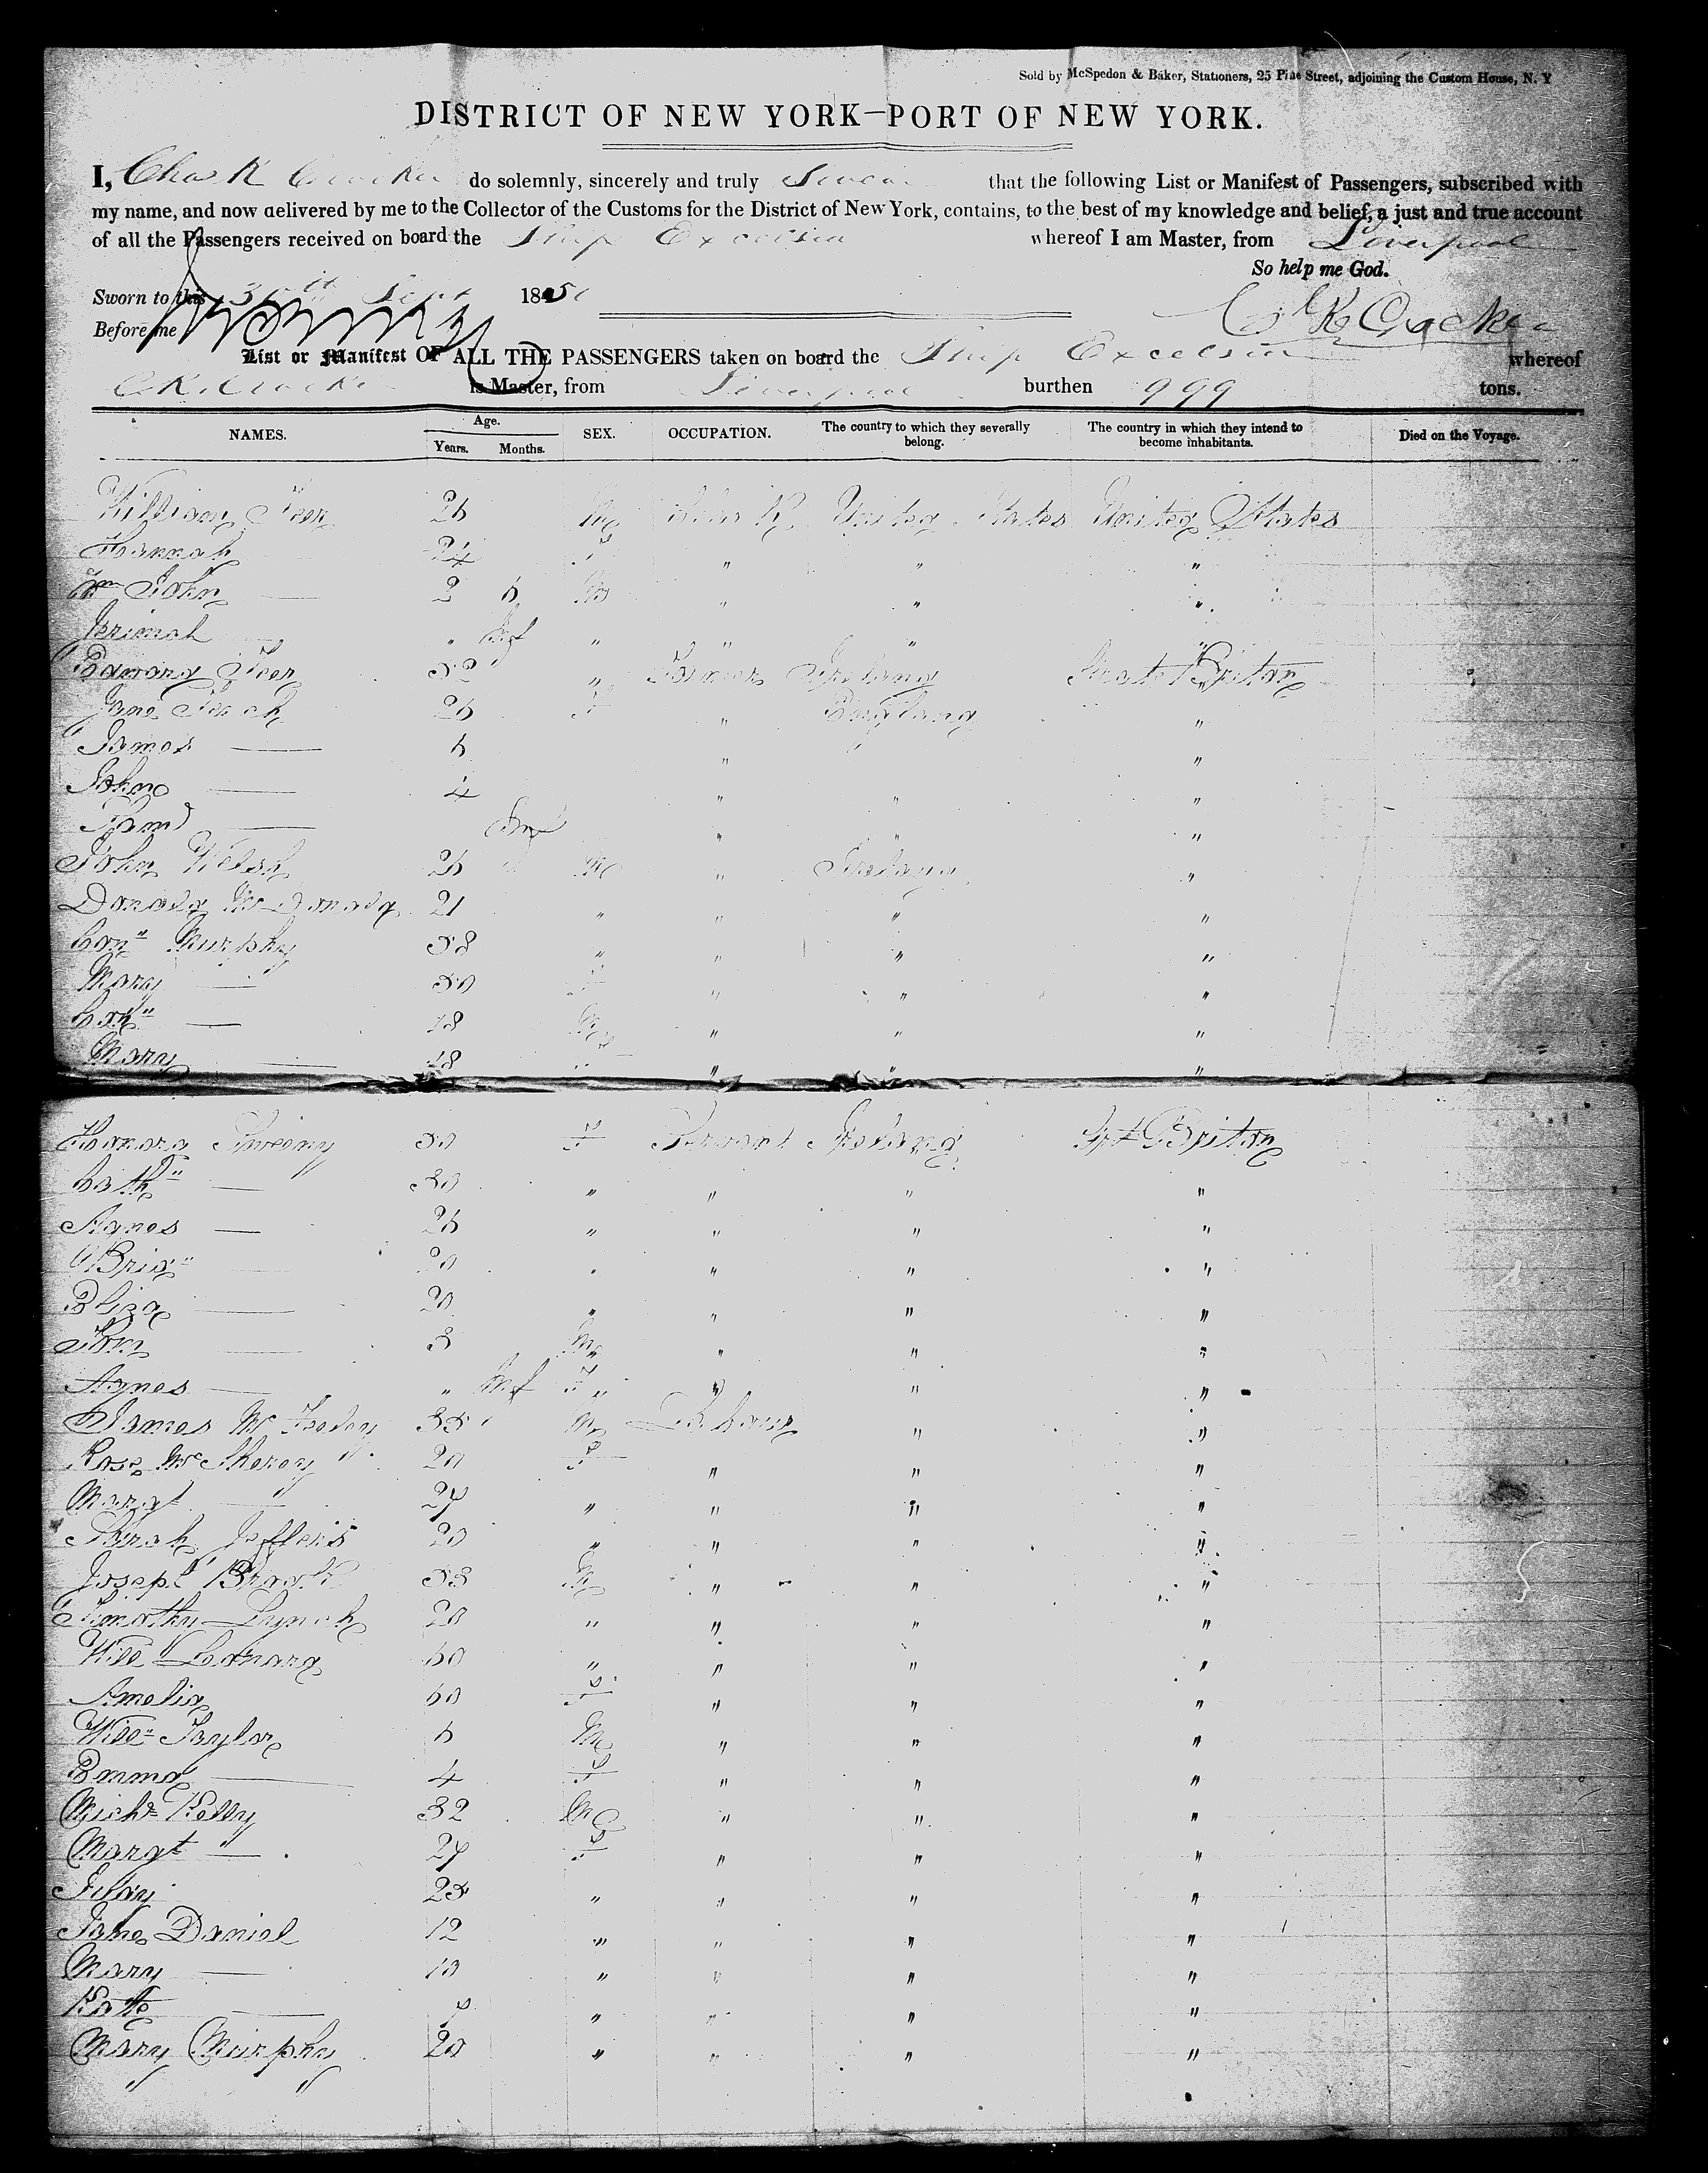 Sold by McSpedon & Baker, Stationers, 25 Pine Street, adjoining the Custom House, N. Y
DISTRICT OF NEW YORK—PORT OF NEW YORK.
I, Chas R Crocker do solemnly, sincerely and truly Swear that the following List or Manifest of Passengers, subscribed with
my name, and now delivered by me to the Collector of the Customs for the District of New York, contains, to the best of my knowledge and belief, a just and true account
of all the Passengers received on board the Ship Excelsior whereof I am Master, from Liverpool
So help me God.
Sworn to this 30th Sept 185
Before me
List or Manifest OF ALL THE PASSENGERS taken on board the Ship Excelsior whereof
is Master, from Liverpool burthen 999 tons.
NAMES. Age. Years. Months. SEX. OCCUPATION. The country to which they severally belong. The country in which they intend to become inhabitants. Died on the Voyage.
William 26 M United States United States
Hannah 24 F " " "
Wm John — 2 6 M " " "
Jerimah " Inf " " " "
Edward " Farmer Ireland Great Britan
Jane 26 F " England "
James — 6 " " "
John — 4 " " "
— Inf " " "
John Welsh 26 M " Ireland "
Donald McDonald 21 " " " "
Corn" Murphy 58 " " " "
Mary — 50 F " " "
Corn" — 18 M " " "
Mary — 18 F " " "
Honora Sweeny 50 F Servant Ireland Grt Britan
Cath" — 30 " " " "
Agnes — 26 " " " "
Brid" — 20 " " " "
Eliza — 20 " " " "
— 3 M " " "
Agnes — " Inf F " " "
James Mc 35 M Labour " "
Rose Mc 20 F " " "
Margt — 24 " " " "
Sarah Jefferis 20 " " " "
Joseph 53 M " " "
Timothy Lynch 20 " " " "
Will Leonard 60 " " " "
Amelia 60 F " " "
Will" Taylor 6 M " " "
Emma — 4 F " " "
Michl Kelly 32 M " " "
Margt — 24 F " " "
25 " " " "
Jane Daniel 12 " " " "
Mary — 10 " " " "
Kate — " " " "
Mary Murphy 20 " " " "